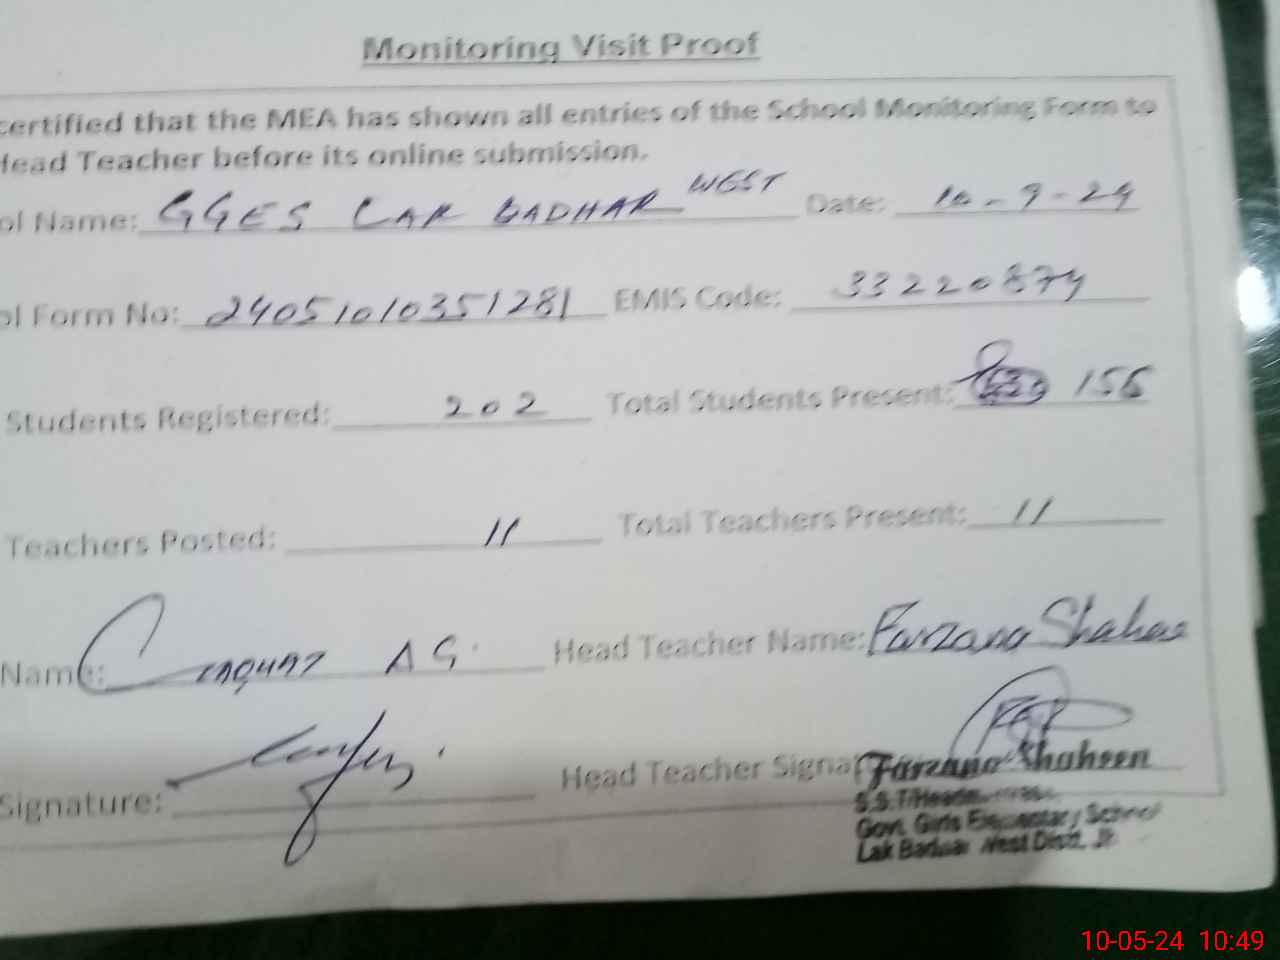 Monitoring Visit Proof
certified that the MEA has shown all entries of the School Monitoring Form to
Head Teacher before its online submission.
ol Name: GGES LAK BADHAR WEST Date: 10-9-24
ol Form No: 24051010351281 EMIS Code: 33220874
Students Registered: 202 Total Students Present: 155
Teachers Posted: 11 Total Teachers Present: 11
Name: LIAQUAT Head Teacher Name: Farzana Shaheen
Signature: Head Teacher Signa
Farzana Shaheen
S.S.T/Headmistress
Govt. Girls Elementary School
Lak Badhar West Distt.
10-05-24 10:49